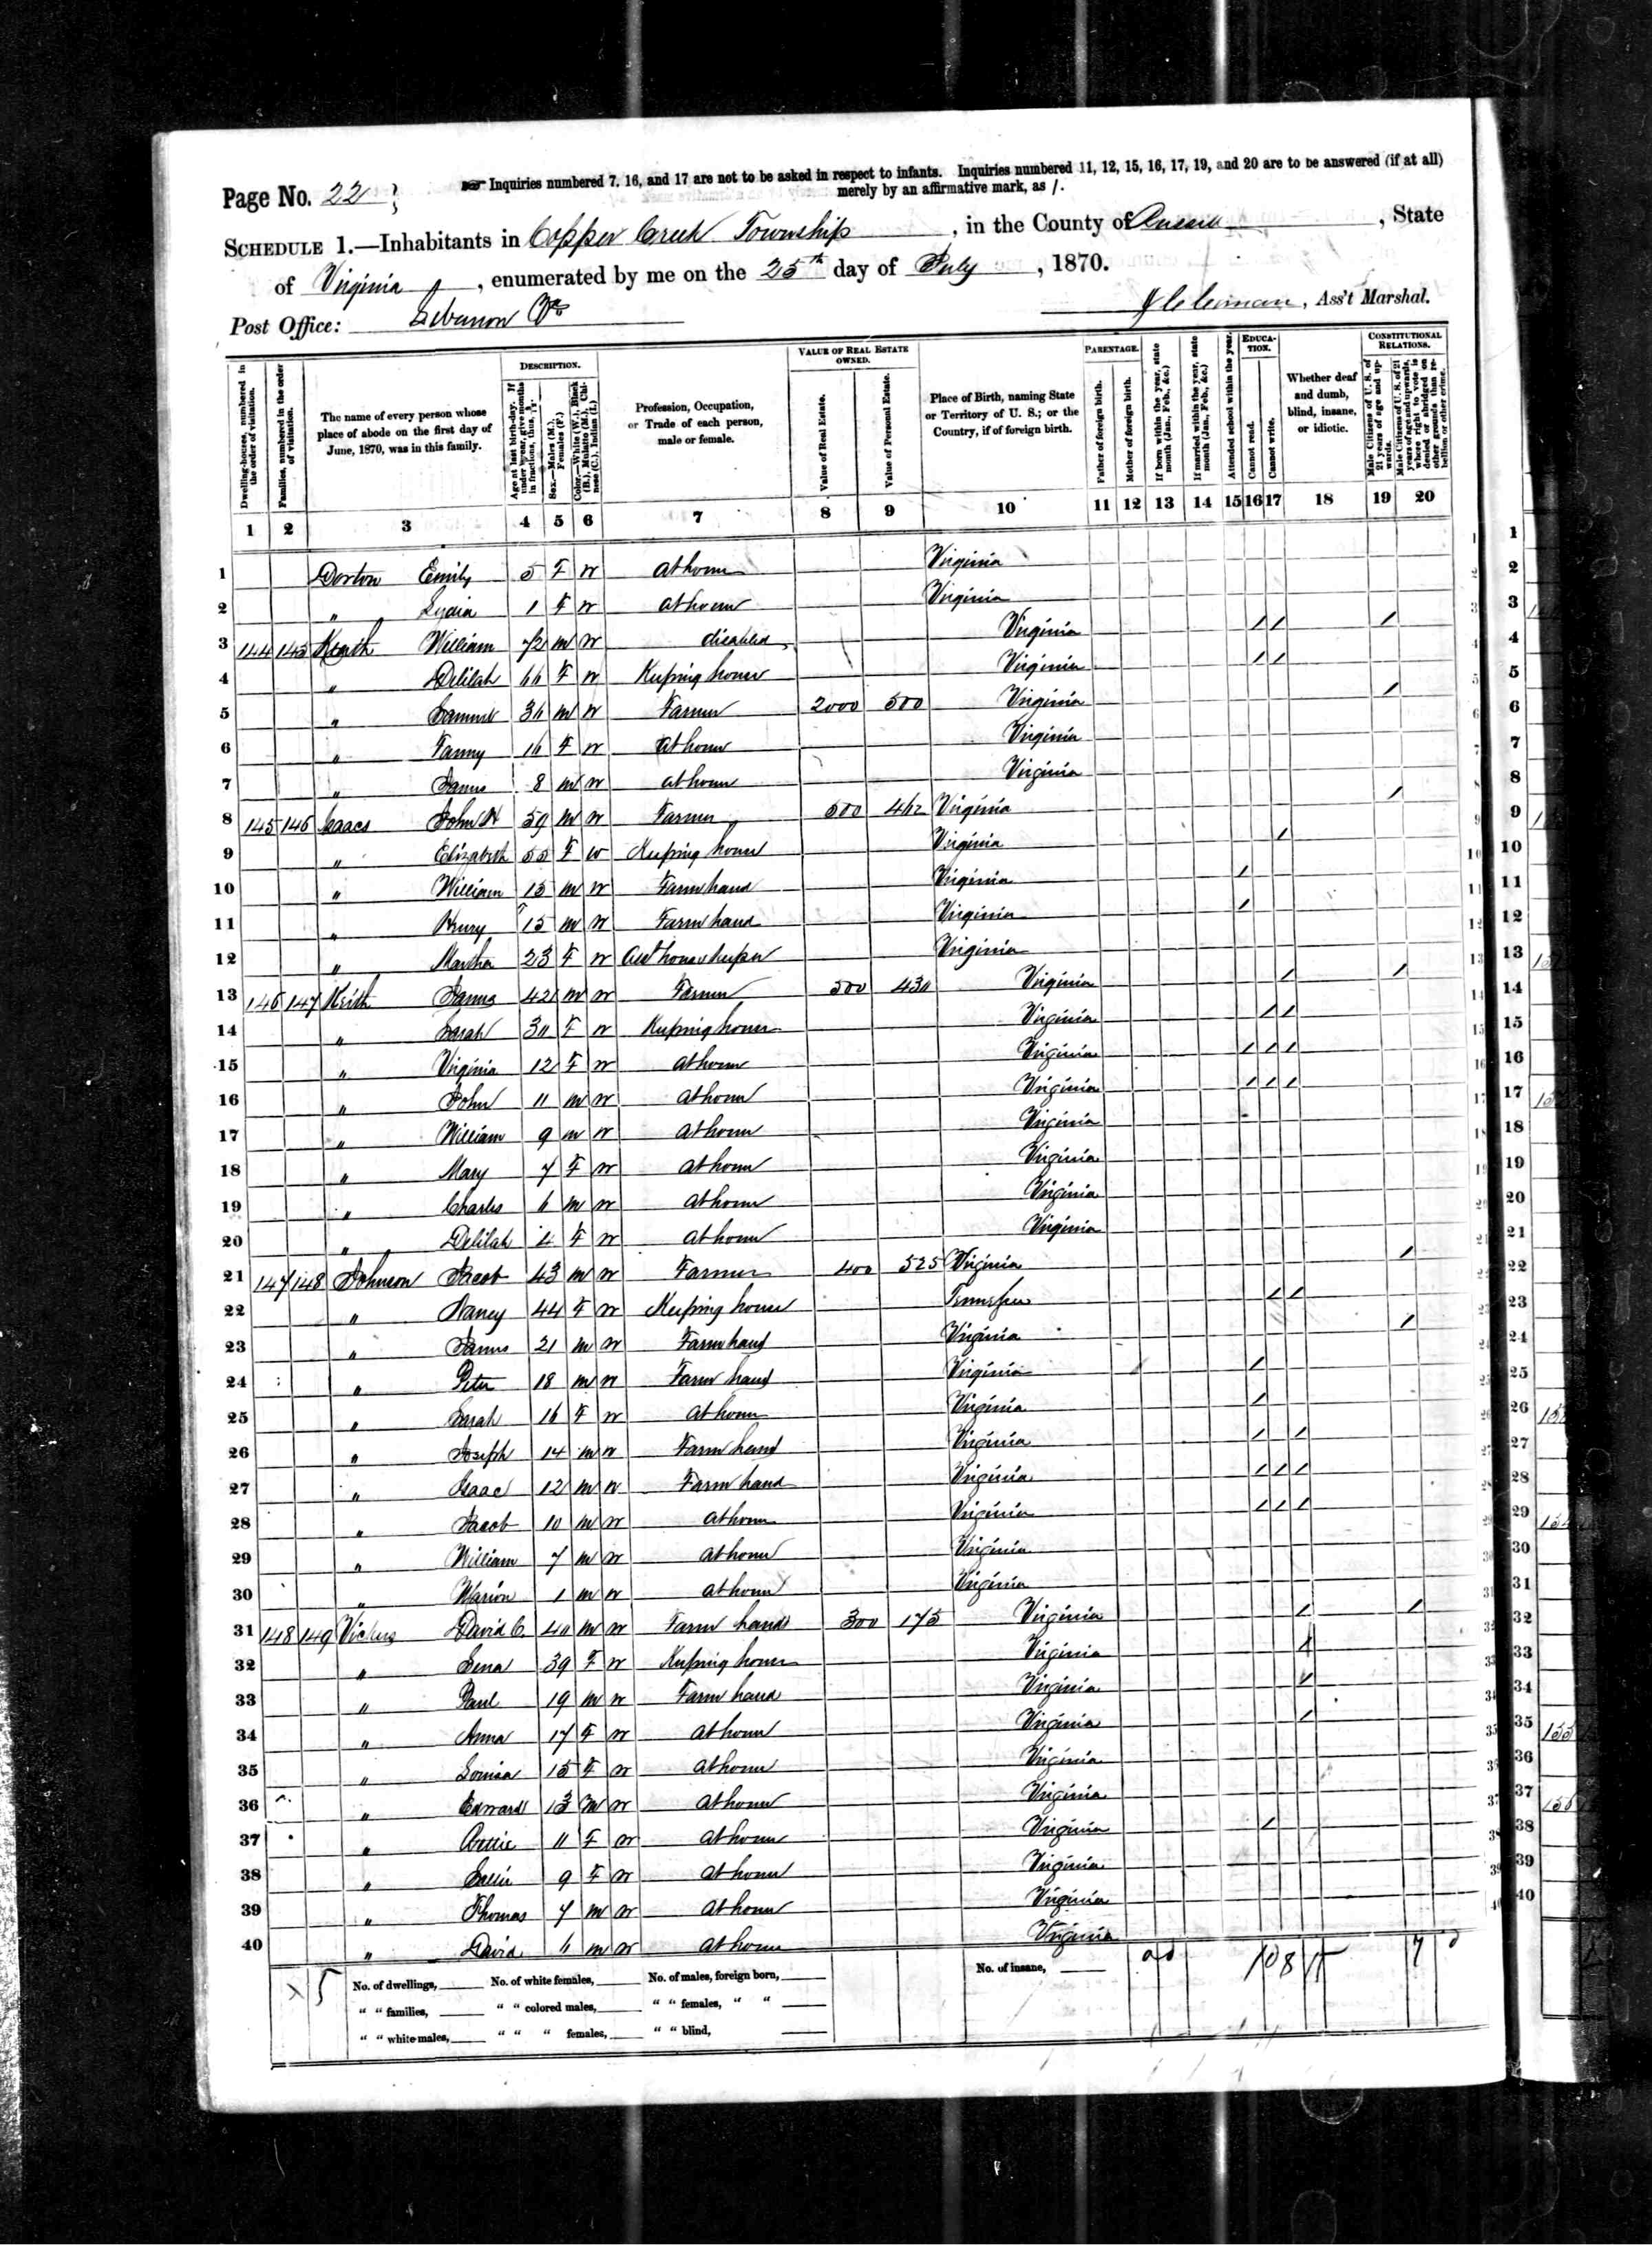 Page No. 22
Inquiries numbered 7, 16, and 17 are not to be asked in respect to infants. Inquiries numbered 11, 12, 15, 16, 17, 19, and 20 are to be answered (if at all)
merely by an affirmative mark, as /.
SCHEDULE 1.—Inhabitants in Copper Creek Township, in the County of Russell, State
of Virginia, enumerated by me on the 25th day of July, 1870.
Post Office: Lebanon Va
, Ass't Marshal.
Dwelling-houses, numbered in the order of visitation.
Families, numbered in the order of visitation.
The name of every person whose place of abode on the first day of June, 1870, was in this family.
DESCRIPTION.
Age at last birth-day. If under 1 year, give months in fractions, thus, 3/12.
Sex.—Males (M.), Females (F.)
Color.—White (W.), Black (B.), Mulatto (M.), Chinese (C.), Indian (I.)
Profession, Occupation, or Trade of each person, male or female.
VALUE OF REAL ESTATE OWNED.
Value of Real Estate.
Value of Personal Estate.
Place of Birth, naming State or Territory of U. S.; or the Country, if of foreign birth.
PARENTAGE.
Father of foreign birth.
Mother of foreign birth.
If born within the year, state month (Jan., Feb., &c.)
If married within the year, state month (Jan., Feb., &c.)
Attended school within the year.
EDUCATION.
Cannot read.
Cannot write.
Whether deaf and dumb, blind, insane, or idiotic.
CONSTITUTIONAL RELATIONS.
Male Citizens of U. S. of 21 years of age and upwards.
Male Citizens of U. S. of 21 years of age and upwards, whose right to vote is denied or abridged on other grounds than rebellion or other crime.
1 2 3 4 5 6 7 8 9 10 11 12 13 14 15 16 17 18 19 20
1 Dorton Emily 5 F W At home Virginia
2 " Lydia 1 F W At home Virginia
3 144 145 Keith William 72 M W disabled Virginia / / /
4 " Delilah 66 F W Keeping house Virginia / /
5 " Samuel 36 M W Farmer 2000 500 Virginia /
6 " Fanny 16 F W At home Virginia
7 " James 8 M W At home Virginia
8 145 146 Isaacs John H 59 M W Farmer 500 462 Virginia /
9 " Elizabeth 55 F W Keeping house Virginia /
10 " William 15 M W Farm hand Virginia /
11 " Henry 15 M W Farm hand Virginia /
12 " Martha 23 F W Ast housekeeper Virginia
13 146 147 Keith James 42 M W Farmer 500 430 Virginia / /
14 " Sarah 30 F W Keeping house Virginia / /
15 " Virginia 12 F W At home Virginia / / /
16 " John 11 M W At home Virginia / / /
17 " William 9 M W At home Virginia
18 " Mary 7 F W At home Virginia
19 " Charles 6 M W At home Virginia
20 " Delilah 4 F W At home Virginia
21 147 148 Johnson Jacob 43 M W Farmer 400 525 Virginia /
22 " Nancy 44 F W Keeping house Tennessee / /
23 " James 21 M W Farm hand Virginia /
24 " Peter 18 M W Farm hand Virginia /
25 " Sarah 16 F W At home Virginia /
26 " Joseph 14 M W Farm hand Virginia / /
27 " Isaac 12 M W Farm hand Virginia / / /
28 " Jacob 10 M W At home Virginia / / /
29 " William 7 M W At home Virginia
30 " Marion 1 M W At home Virginia
31 148 149 Vickers David C. 40 M W Farm hand 300 175 Virginia / /
32 " Lena 39 F W Keeping house Virginia /
33 " Paul 19 M W Farm hand Virginia /
34 " Anna 17 F W At home Virginia /
35 " Louisa 15 F W At home Virginia
36 " Edward 13 M W At home Virginia
37 " 11 F W At home Virginia /
38 " Sallie 9 F W At home Virginia
39 " Thomas 7 M W At home Virginia
40 " David 6 M W At home Virginia
No. of dwellings, No. of white females, No. of males, foreign born, No. of insane,
" " families, " " colored males, " " females, " "
" " white males, " " " females, " " blind,